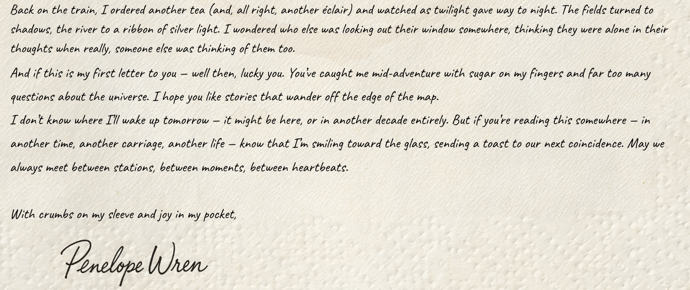 Back on the train, I ordered another tea (and, all right, another éclair) and watched as twilight gave way to night. The fields turned to
shadows, the river to a ribbon of silver light. I wondered who else was looking out their window somewhere, thinking they were alone in their
thoughts when really, someone else was thinking of them too.
And if this is my first letter to you — well then, lucky you. You've caught me mid-adventure with sugar on my fingers and far too many
questions about the universe. I hope you like stories that wander off the edge of the map.
I don't know where I'll wake up tomorrow — it might be here, or in another decade entirely. But if you're reading this somewhere — in
another time, another carriage, another life — know that I'm smiling toward the glass, sending a toast to our next coincidence. May we
always meet between stations, between moments, between heartbeats.
With crumbs on my sleeve and joy in my pocket,
Penelope Wren